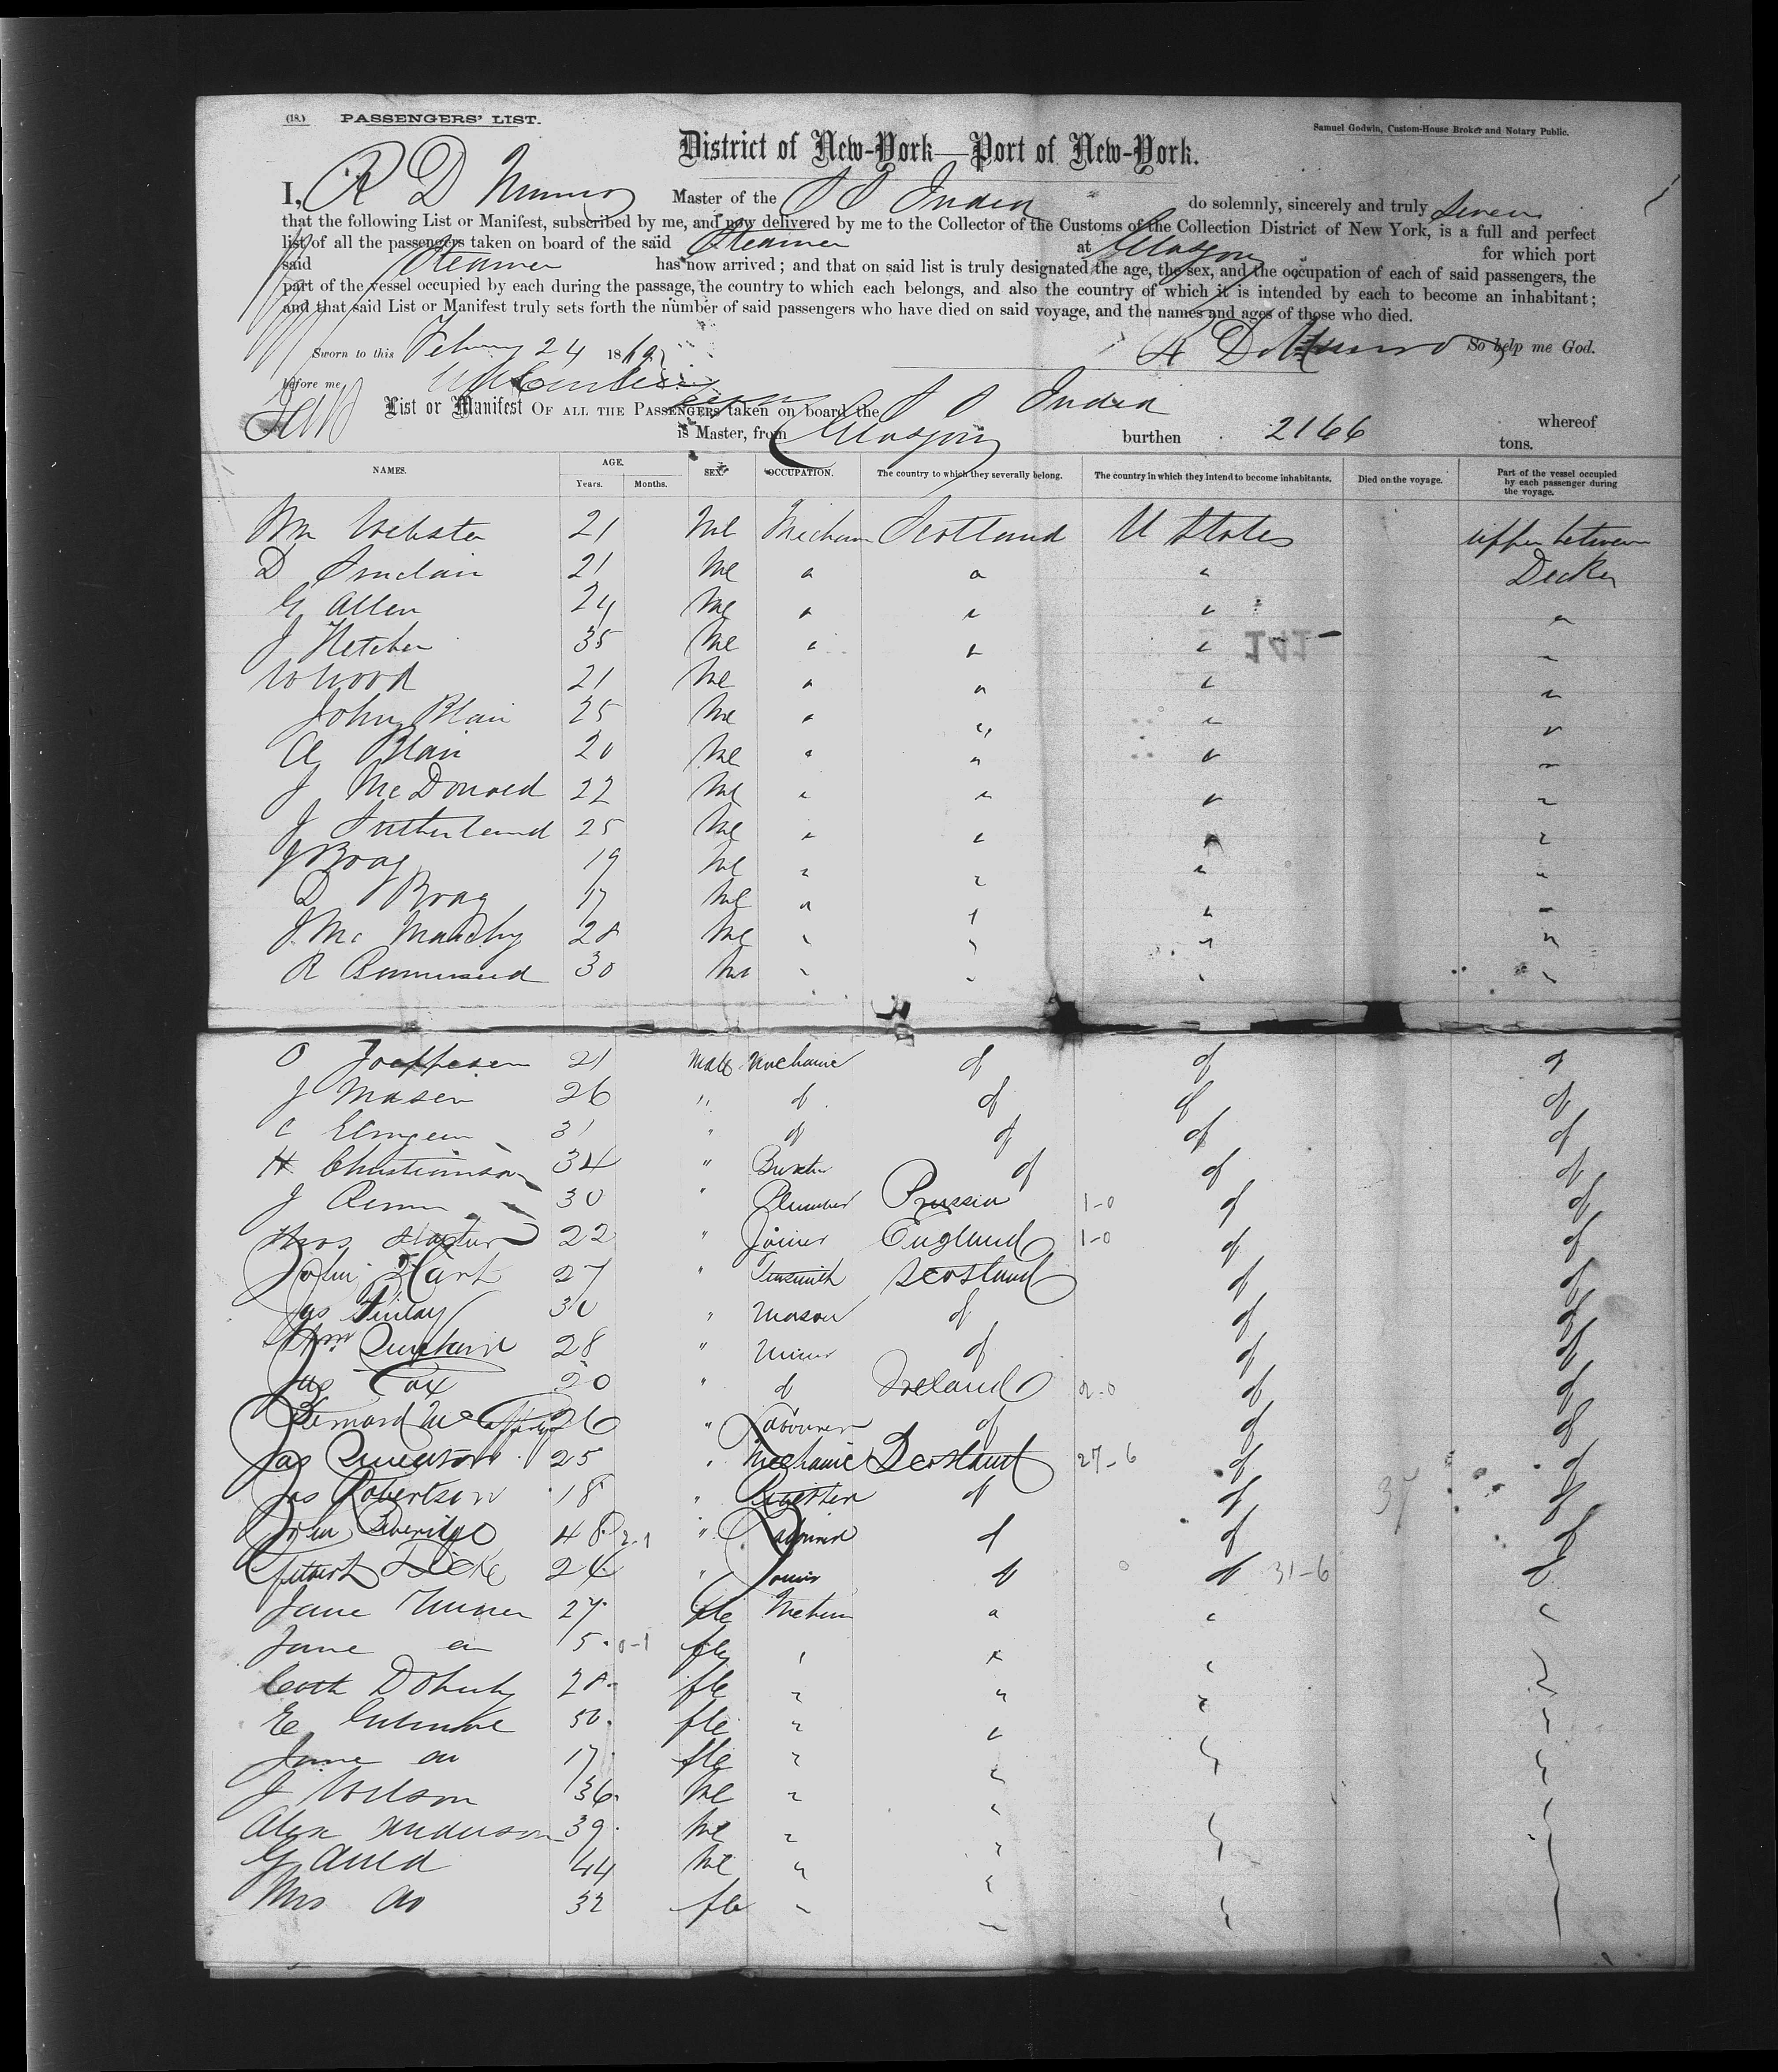 (18.) PASSENGERS' LIST.
Samuel Godwin, Custom-House Broker and Notary Public.
District of New-York—Port of New-York.
I, R D Munro Master of the S S India do solemnly, sincerely and truly Swear
that the following List or Manifest, subscribed by me, and now delivered by me to the Collector of the Customs of the Collection District of New York, is a full and perfect
list of all the passengers taken on board of the said Steamer at Glasgow for which port
said Steamer has now arrived; and that on said list is truly designated the age, the sex, and the occupation of each of said passengers, the
part of the vessel occupied by each during the passage, the country to which each belongs, and also the country of which it is intended by each to become an inhabitant;
and that said List or Manifest truly sets forth the number of said passengers who have died on said voyage, and the names and ages of those who died.
Sworn to this Februy 24 1869 R D Munro So help me God.
before me
List or Manifest OF ALL THE PASSENGERS taken on board the S S India whereof
is Master, from Glasgow burthen 2166 tons.
NAMES. AGE. Years. Months. SEX. OCCUPATION. The country to which they severally belong. The country in which they intend to become inhabitants. Died on the voyage. Part of the vessel occupied by each passenger during the voyage.
Wm Webster 21 Me Mechan Scotland U States upper between
D Sinclair 21 Me " " " Decks
G Allen 24 Me " " " "
J Fletcher 35 Me " " " "
141
W Wood 21 Me " " " "
John Blair 25 Me " " " "
A Blair 20 Me " " " "
J McDonald 22 Me " " " "
J Sutherland 25 Me " " " "
J Bray 19 Me " " " "
D Bray 17 Me " " " "
J Mc 28 Me " " " "
R 30 Me " " " "
O 21 Male Mechanic do do do
J Masen 26 " do do do do
C 31 " do do do do
H Christianson 34 " do do do
J 30 " Plumber Prussia 1-0 do do
Thos 22 " Joiner England 1-0 do do
John Hart 27 " Tinsmith Scotland do do
Jas Finlay 30 " Mason do do do
Wm 28 " Miner do do do
Jas Cox 20 " do Ireland 2-0 do do
Bernard Mc 26 " Labourer do do do
Jas 25 " Mechanic Scotland 27-6 do do
Jas Robertson 18 " do do 37 do
John Beveridge 48 2-1 " Labourer do do do
Gilbert Dick 24 " Joiner do do 31-6 do
Jane Turner 27 fle Mechan " " "
Jane do 5 0-1 fle " " " "
Cath Doherty 28 fle " " " "
E 50 fle " " " "
Jane do 17 fle " " " "
J Wilson 36 Me " " " "
Alex Anderson 39 Me " " " "
G Auld 44 Me " " " "
Mrs do 32 fle " " " "